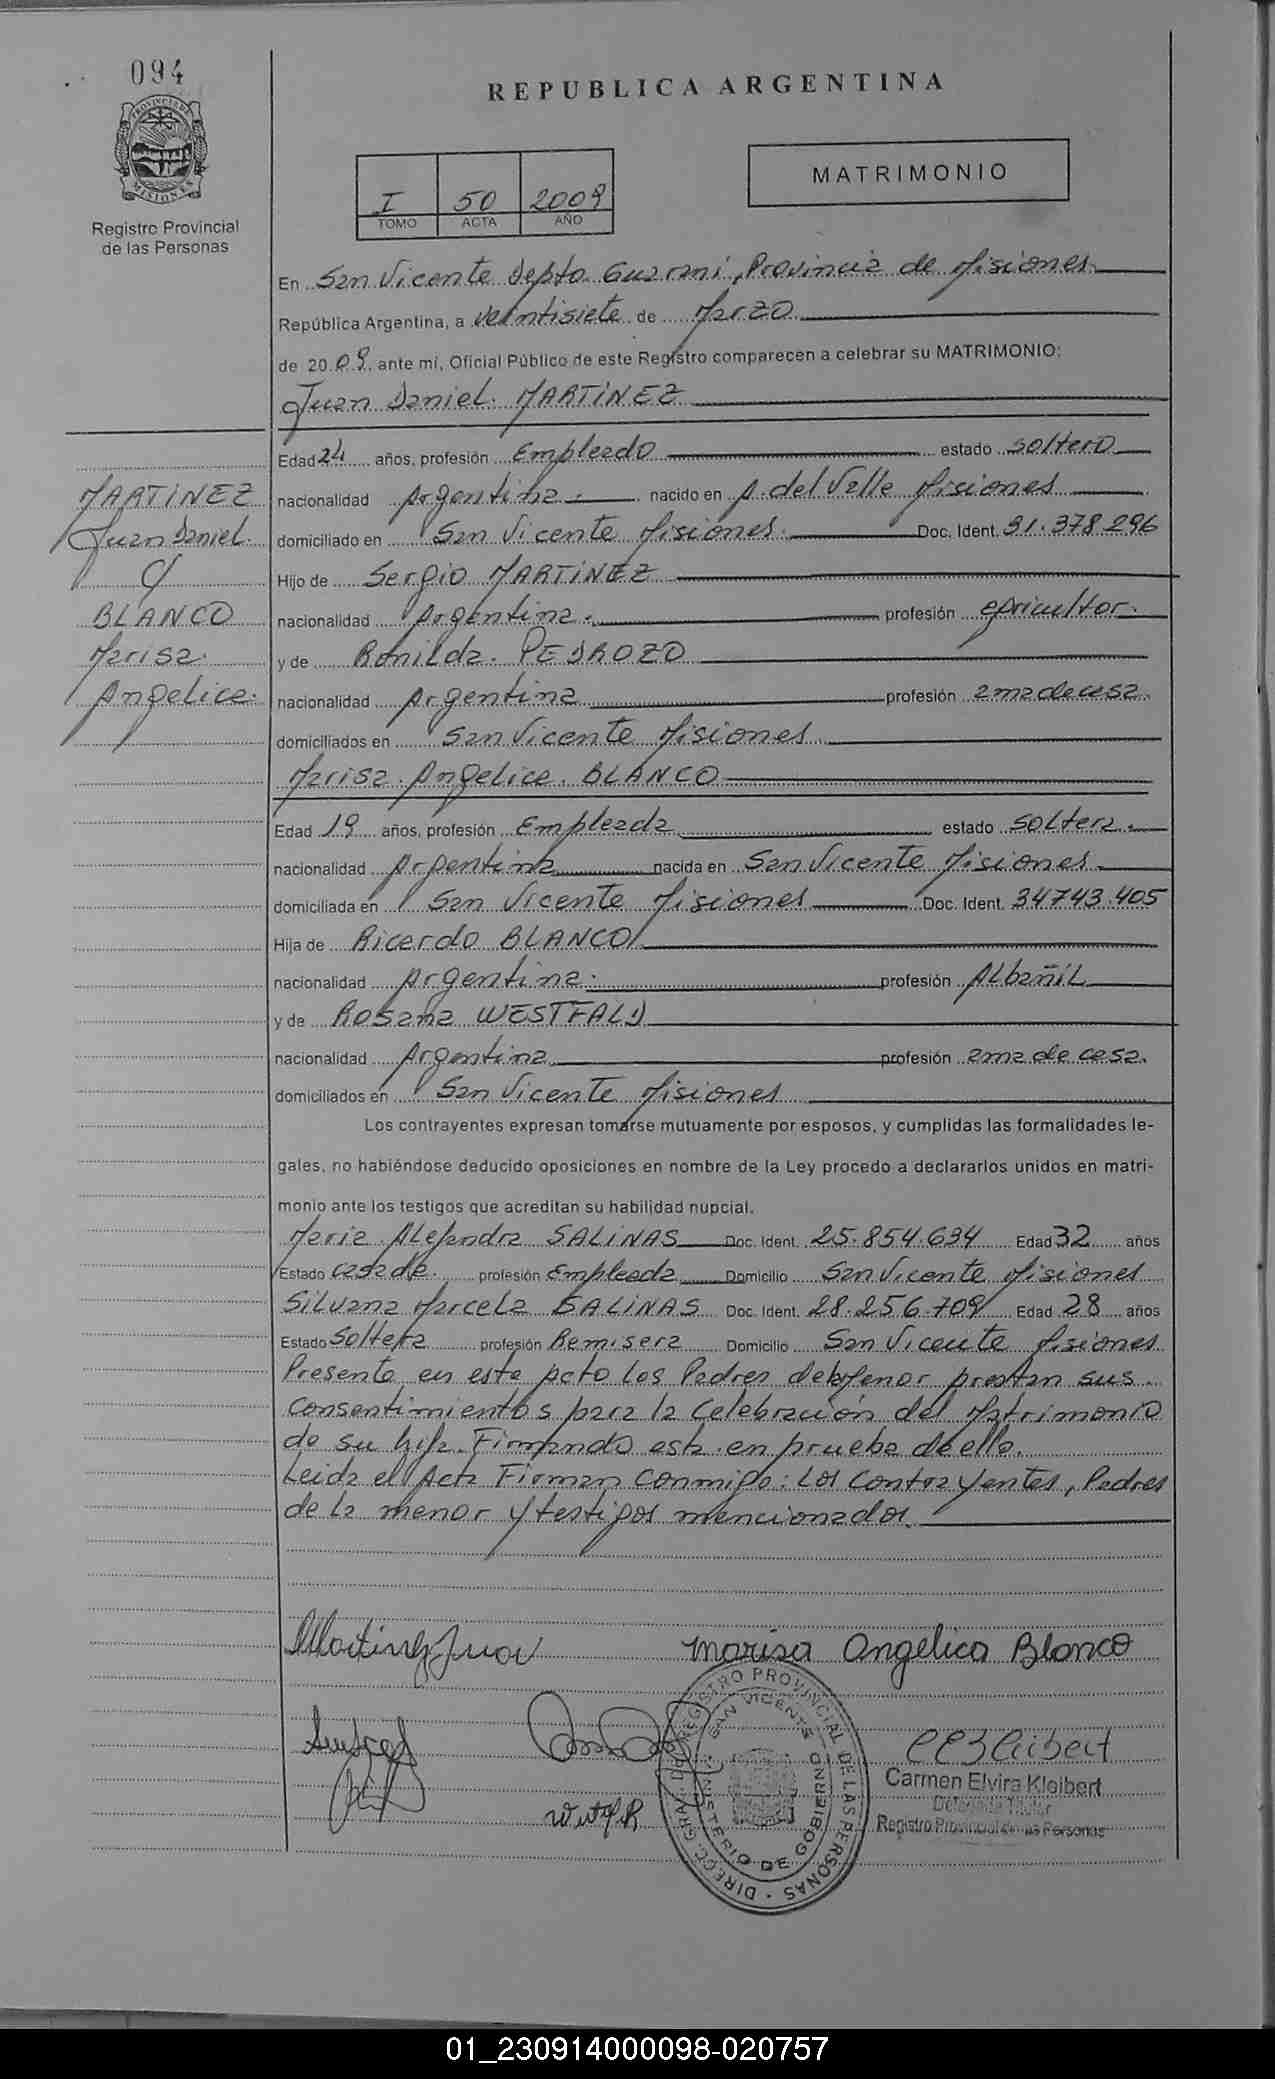 094
PROVINCIA DE
MISIONES
Registro Provincial
de las Personas
REPUBLICA ARGENTINA
MATRIMONIO
I 50 2009
TOMO ACTA AÑO
En San Vicente Depto. Guaraní, Provincia de Misiones
República Argentina, a veintisiete de Marzo
de 20 09 ante mí, Oficial Público de este Registro comparecen a celebrar su MATRIMONIO:
Juan Daniel. MARTINEZ
Edad 24 años, profesión Empleado estado soltero
nacionalidad Argentina. nacido en A. del Valle Misiones
domiciliado en San Vicente Misiones. Doc. Ident. 31.378.296
Hijo de Sergio MARTINEZ
nacionalidad Argentina. profesión agricultor.
y de Ronilda. PEDROZO
nacionalidad Argentina profesión ama de casa.
domiciliados en San Vicente Misiones.
Marisa. Angelica. BLANCO
Edad 19 años, profesión Empleada estado soltera.
nacionalidad Argentina nacida en San Vicente Misiones.
domiciliada en San Vicente Misiones Doc. Ident. 34743.405
Hija de Ricardo BLANCO
nacionalidad Argentina. profesión Albañil
y de Rosana WESTFALD
nacionalidad Argentina profesión ama de casa.
domiciliados en San Vicente Misiones
Los contrayentes expresan tomarse mutuamente por esposos, y cumplidas las formalidades le-
gales, no habiéndose deducido oposiciones en nombre de la Ley procedo a declararlos unidos en matri-
monio ante los testigos que acreditan su habilidad nupcial.
Maria Alejandra SALINAS Doc. Ident. 25.854.634 Edad 32 años
Estado casada. profesión Empleada Domicilio San Vicente Misiones
Silvana Marcela SALINAS Doc. Ident. 28.256.709 Edad 28 años
Estado Soltera profesión Remisera Domicilio San Vicente Misiones
Presente en este acto los Padres de la menor prestan sus
Consentimientos para la Celebración del Matrimonio
de su hija. Firmando esta en prueba de ello.
Leida el Acta Firman conmigo: Los Contrayentes, Padres
de la menor y testigos mencionados.
MARTINEZ
Juan Daniel.
c/
BLANCO
Marisa.
Angelica.
Martinez Juan
Marisa Angélica Blanco
DIRECC. GRAL. DE REGISTRO PROVINCIAL DE LAS PERSONAS
SAN VICENTE
MINISTERIO DE GOBIERNO
Carmen Elvira Kleibert
Delegada Titular
Registro Provincial de las Personas
01_230914000098-020757